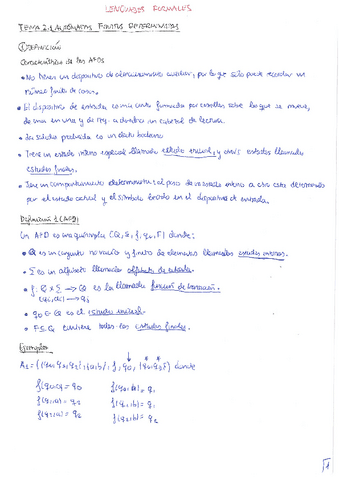 LENGUAJES FORMALES
TEMA 2.1 AUTÓMATAS FINITOS DETERMINISTAS
① DEFINICIÓN
Características de los AFDs
• No tienen un dispositivo de almacenamiento auxiliar, por lo que sólo puede recordar un
número finito de cosas.
• El dispositivo de entrada es una cinta formada por casillas sobre la que se mueve,
de una en una y de izq. a derecha un cabezal de lectura.
• La salida producida es un dato booleano.
• Tiene un estado interno especial llamado estado inicial, y varios estados llamados
estados finales.
• Tiene un comportamiento determinista: el paso de un estado interno a otro está determinado
por el estado actual y el símbolo leído en el dispositivo de entrada.
Definición 1 (AFD)
Un AFD es una quíntupla (Q, Σ, f, q0, F) donde:
• Q es un conjunto no vacío y finito de elementos llamados estados internos.
• Σ es un alfabeto llamado alfabeto de entrada.
• f: Q × Σ → Q es la llamada función de transición.
(qi, a) → qj
• q0 ∈ Q es el estado inicial.
• F ⊆ Q contiene todos los estados finales.
Ejemplo
donde
f(q0,a) = q0 f(q0,b) = q1
f(q1,a) = q2 f(q1,b) = q1
f(q2,a) = q2 f(q2,b) = q2
1